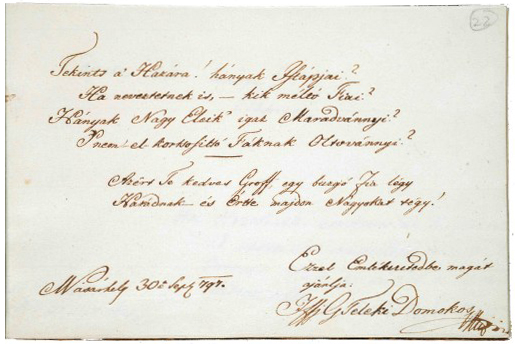 22
Tekints a' Hazára! hányak Istápjai?
Ha neveztetnek is, — kik méltó Fiai?
Hányak Nagy Eleik' igaz Maradvánnyi?
'S nem el kortsosúltt Fáknak Oltoványnyi?
Azért Te kedves Groff, egy buzgó Fia légy
Hazádnak – és Érte majdan Nagyokat tégy!
Ezzel Emlékezetedbe magát
ajánlja
Vásárhely 30a Sept 797.
Iffj G Teleki Domokos